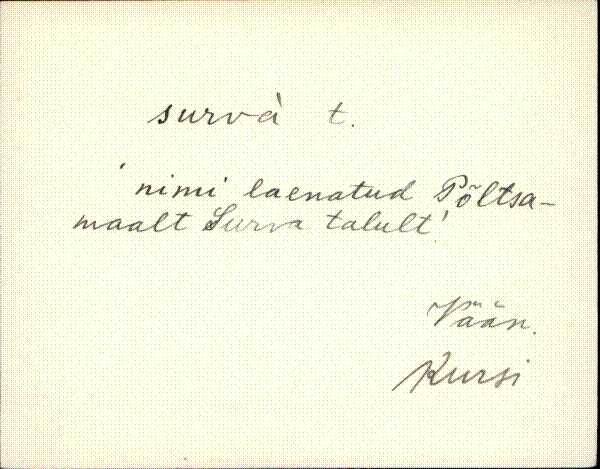 survà t.
'nimi laenatud Põltsa-
maalt Surva talult'
Vään.
Kursi